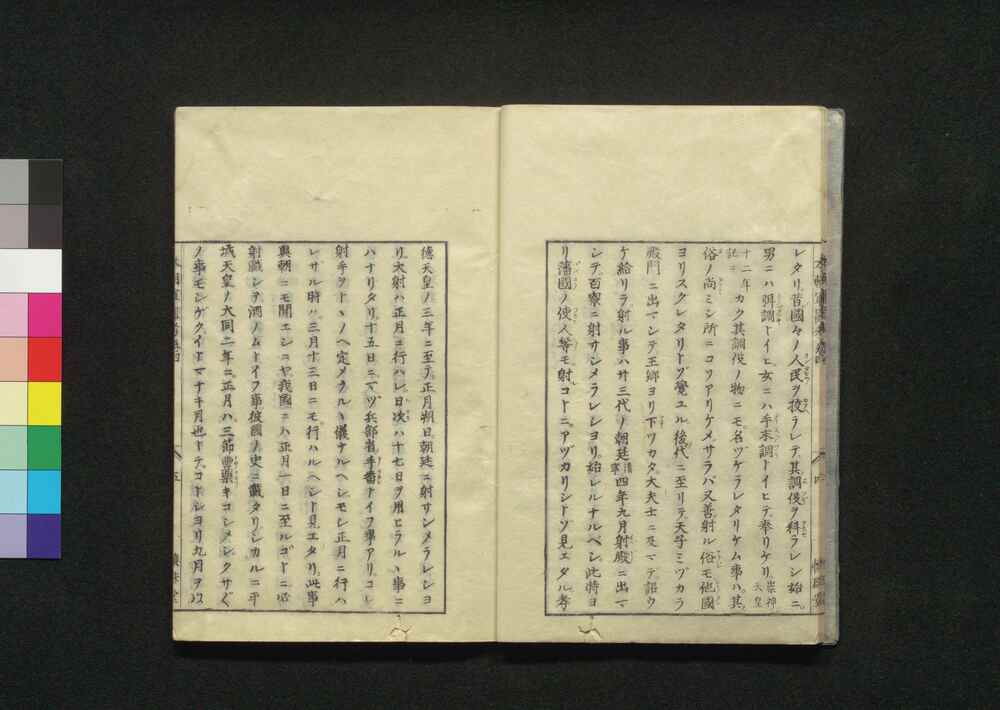 レタリ昔國々ノ人民ヲ挍ラレテ其調伇ヲ科ラレシ始ニ
男ニハ弭調トイヒ女ニハ手末調トイヒテ奉リケリ崇神天皇
十二年記ニ カク其調伇ノ物ニモ名ヅケラレタリケム事ハ其
俗ノ尚ミシ所ニコソアリケメサラバ又善射ル俗モ他國
ヨリスグレタリトゾ覺ユル後代ニ至リテ天子ミヅカラ
殿門ニ出マシテ王卿ヨリ下ツカタ大夫士ニ及マデ詔ウ
ケ給リテ射ル事ハ廾三代ノ朝廷清寧四年九月射殿ニ出マ
シテ百寮ニ射サシメラレシヨリ始レルナルベシ此時ヨ
リ藩國ノ使人等モ射コトニアヅカリシトゾ見エタル孝
德天皇ノ三年ニ至テ正月朔日朝廷ニ射サシメラレシヨ
リ大射ハ正月ニ行ハレ日次ハ十七日ヲ用ヒラルヽ事ニ
ハナリタリ十五日ニマヅ兵部省手番トイフ事アリコレ
射手ヲトヽノヘ定メラルヽ儀ナルヘシモシ正月ニ行ハ
レザル時ハ三月十三日ニモ行ハルヘシト見エタリ此事
異朝ニモ聞エシニヤ我國ニハ正月一日ニ至ルゴトニ必
射戲シテ酒ノムトイフ事彼國ノ史ニ載タリシカルニ平
城天皇ノ大同二年ニ正月ハ三節
ノ事モシゲクイトマナキ月也トテコトシヨリ九月ヲ以
五